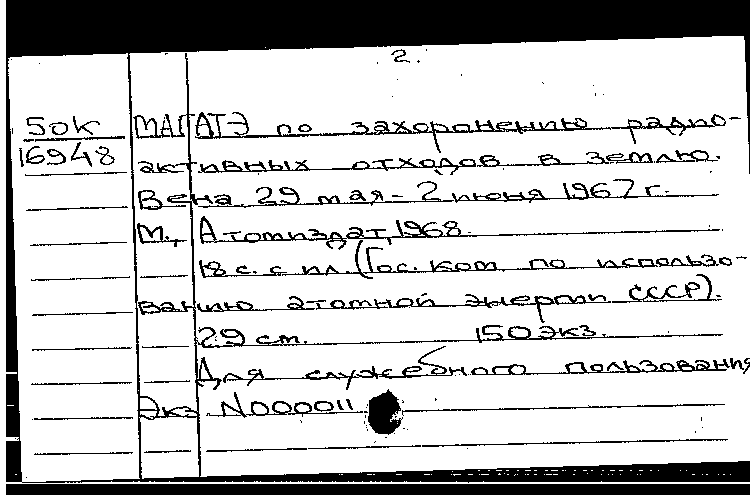 2.
50К МАГАТЭ по захоронению радио-
16948 активных отходов в землю.
Вена, 29 мая - 2 июня 1967 г.
М., Атомиздат, 1968.
18 с. с ил. (Гос. ком. по использо-
ванию атомной энергии СССР).
29 см. 150 экз.
Для служебного пользования
Экз. N000011